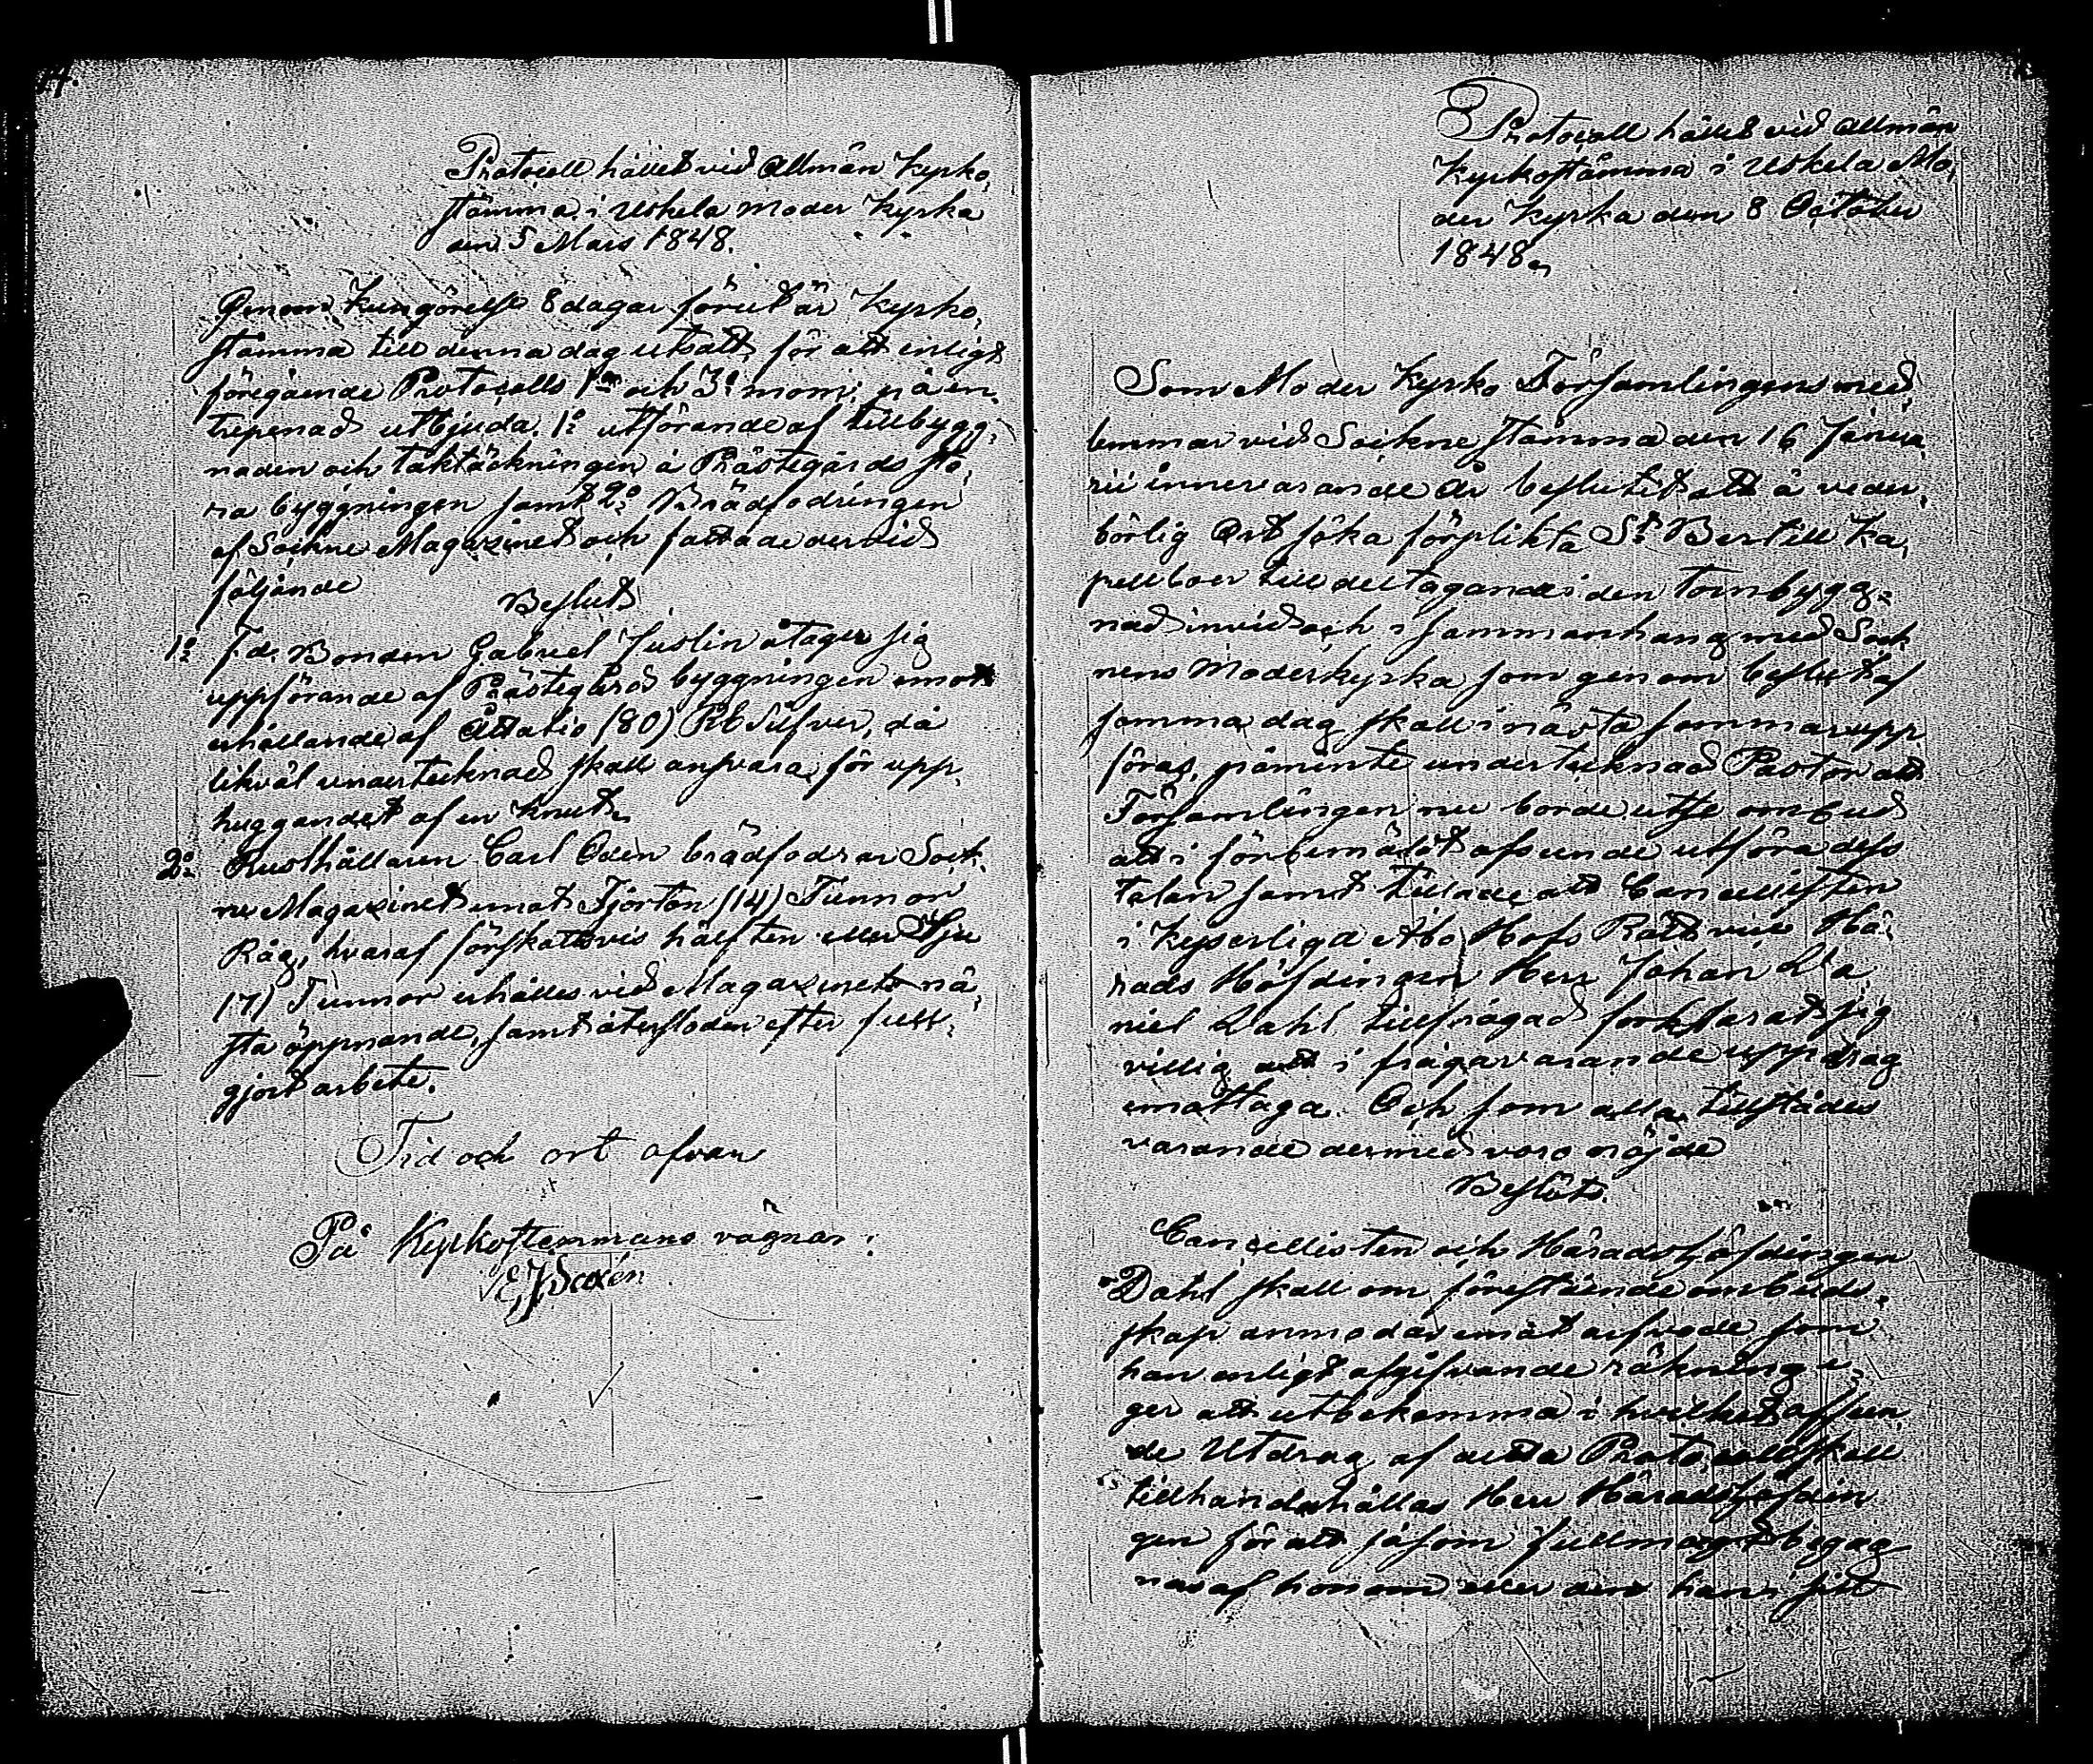 4.
Protocoll hållet vid Allmän Kyrko,
stämma i Uskela Moder Kyrka
den 5 Mars 1848.
Genom Kungörelse 8 dagar förut är Kyrko,
stämma till denna dag utsatt, för att enligt
föregående Protocolls 1o och 3o mom: på en,
treprenad utbjuda 1o utförande af tillbygg,
naden och taktäckningen å Prästegårds sto,
ra byggningen samt 2o Brädfodringen
af Sockne Magazinet och fattade dervid
följande
Beslut
1o f.d. Bonden Gabriel Juslin åtager sig
uppförande af Prästegårds byggningen emot
erhållande af Åttatio (80) Rb Silfver, då
likväl undertecknad skall ansvara för upp,
huggandet af en Knut,
2o Rusthållaren Carl Odén brädfodrar Sock,
ne Magazinet emot Fjorton (14) Tunnor
Råg, hvaraf förskottsvis hälften eller Sju
(7) Tunnor erhålles vid Magazinets nä,
sta öppnande, samt återstoden efter full,
gjort arbete.
Tid och ort ofvan
På Kyrkostemmans vägnar:
E J Saxén
Protocoll hållet vid Allmän
Kyrkostämma i Uskela Mo,
der Kyrka den 8 October
1848,
Som Moder Kyrko Församlingens med,
lemmar vid Sockne stämma den 16 Janua,
rii innevarande År beslutit att å veder,
börlig Ort söka förplikta St Bertill Ka,
pellboer till deltagande i den Tornbygg,
nad invid och i sammanhang med Sock
nens Moderkyrka som genom beslut af
samma dag skall i nästa sommar upp
föras, påminte undertecknad Pastor att
Församlingen nu borde utse ombud
att i förbemälat afseende utföra dess
talan samt tillade att Cancellisten
i Kejserliga Åbo Hofs Rätt vice Hä,
rads Höfdingen Herr Johan Da
niel Dahl tillfrågad förklarat sig
villig att i frågavarande uppdrag
emottaga. Och som alla tillstädes
varande dermed voro nöjde
Beslöts.
Cancellisten och Häradshöfdingen
Dahl skall om förestående ombuds,
skap anmodas emot arfvode som
han enligt afgifvande räkning ä,
ger att utbekomma i hvilket afseen
de Utdrag af detta Protocoll skall
tillhandahållas Herr Häradshöfdin
gen för att såsom fullmagt begag
nas af honom eller den han i sitt